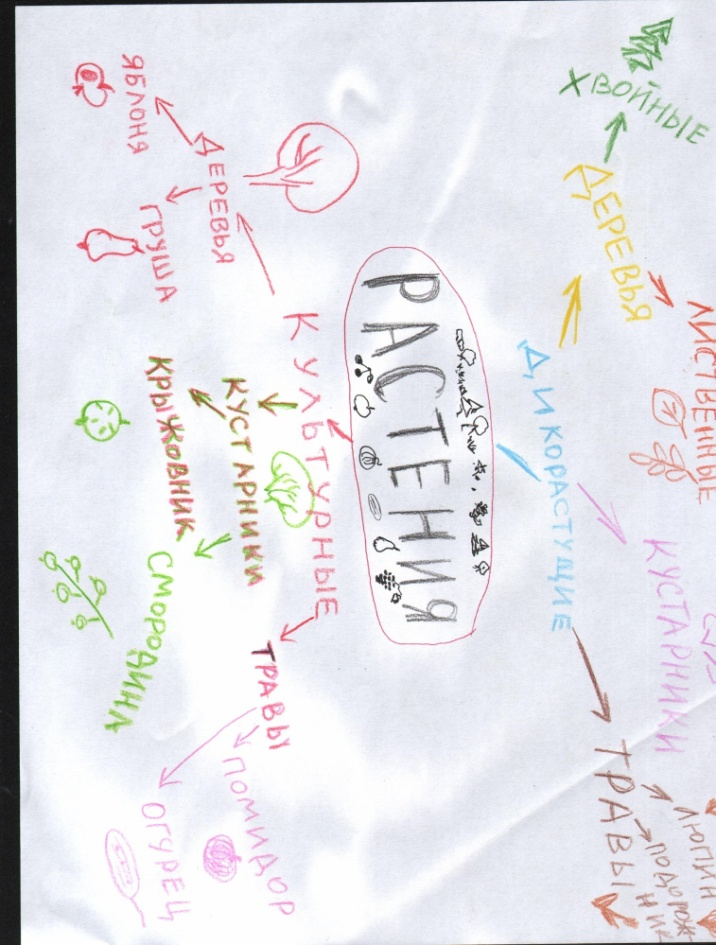 РАСТЕНИЯ
ДИКОРАСТУЩИЕ
ДЕРЕВЬЯ
ХВОЙНЫЕ
ЛИСТВЕННЫЕ
КУСТАРНИКИ
ТРАВЫ
ЛЮПИН
ПОДОРОЖ
НИК
КУЛЬТУРНЫЕ
ДЕРЕВЬЯ
ЯБЛОНЯ
ГРУША
КУСТАРНИКИ
КРЫЖОВНИК
СМОРОДИНА
ТРАВЫ
ПОМИДОР
ОГУРЕЦ